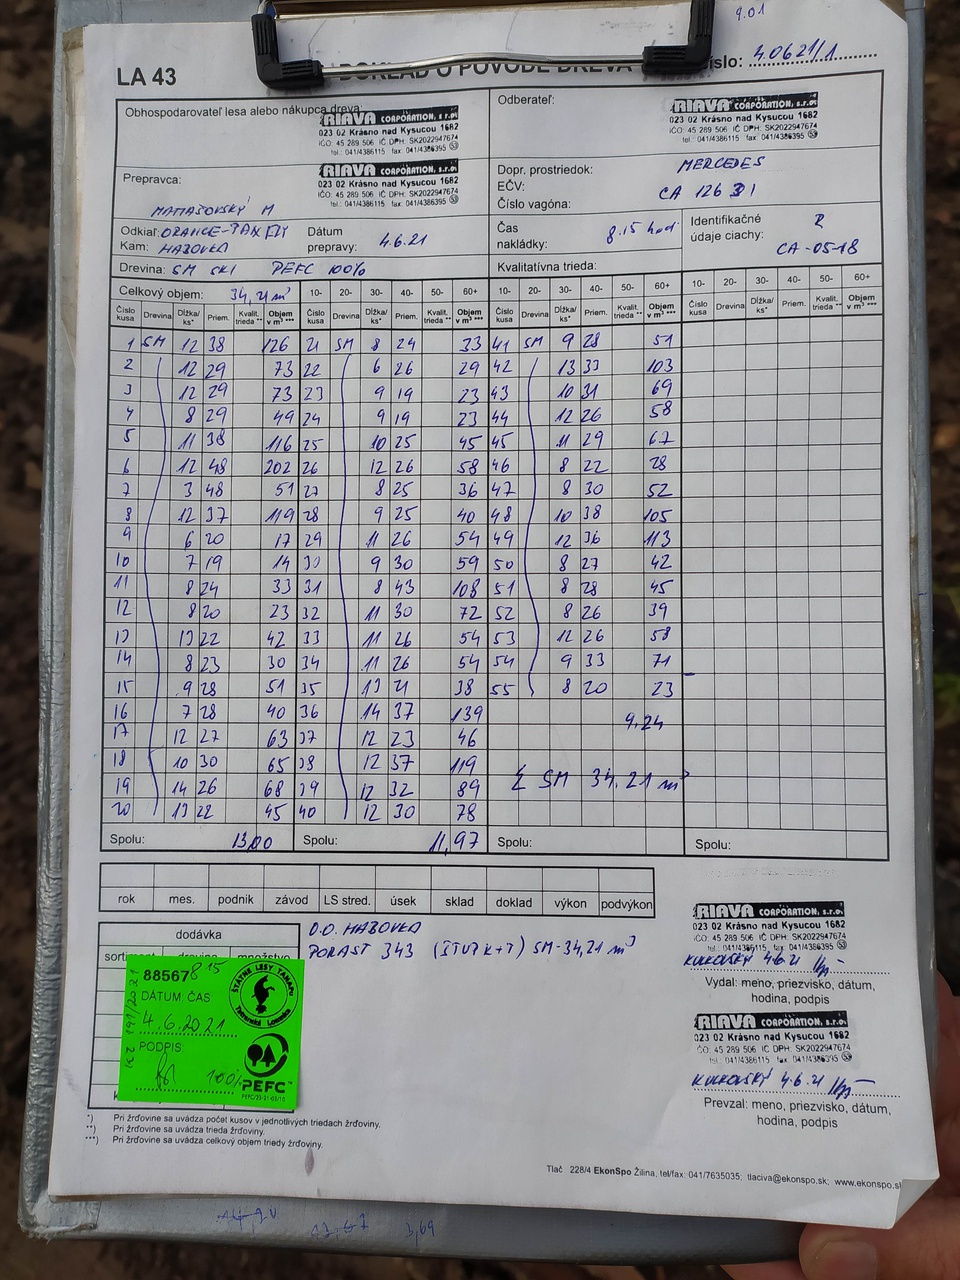 9.01
LA 43
DOKLAD O PÔVODE DREVA
Číslo: 40621/1
Obhospodarovateľ lesa alebo nákupca dreva:
RIAVA CORPORATION, s.r.o.
023 02 Krásno nad Kysucou 1682
IČO: 45 289 506 IČ DPH: SK2022947674
tel.: 041/4386115 fax: 041/4386395
Odberateľ:
RIAVA CORPORATION, s.r.o.
023 02 Krásno nad Kysucou 1682
IČO: 45 289 506 IČ DPH: SK2022947674
tel.: 041/4386115 fax: 041/4386395
Prepravca:
RIAVA CORPORATION, s.r.o.
023 02 Krásno nad Kysucou 1682
IČO: 45 289 506 IČ DPH: SK2022947674
tel.: 041/4386115 fax: 041/4386395
MATIAŠOVSKÝ M
Dopr. prostriedok: MERCEDES
EČV: CA 126 DI
Číslo vagóna:
Odkiaľ:
Kam: HABOVKA
Dátum prepravy: 4.6.21
Čas nakládky: 8.15 hod
Identifikačné údaje ciachy: R
CA-05-18
Drevina: SM SKI PEFC 100%
Kvalitatívna trieda:
Celkový objem: 34,21 m³
10- 20- 30- 40- 50- 60+ 10- 20- 30- 40- 50- 60+ 10- 20- 30- 40- 50- 60+
Číslo kusa Drevina Dĺžka/ks* Priem. Kvalit. trieda ** Objem v m³ *** Číslo kusa Drevina Dĺžka/ks* Priem. Kvalit. trieda ** Objem v m³ *** Číslo kusa Drevina Dĺžka/ks* Priem. Kvalit. trieda ** Objem v m³ *** Číslo kusa Drevina Dĺžka/ks* Priem. Kvalit. trieda ** Objem v m³ ***
1 SM 12 38 126 21 SM 8 24 33 41 SM 9 28 51
2 12 29 73 22 6 26 29 42 13 33 103
3 12 29 73 23 9 19 23 43 10 31 69
4 8 29 49 24 9 19 23 44 12 26 58
5 11 38 116 25 10 25 45 45 11 29 67
6 12 48 202 26 12 26 58 46 8 22 28
7 3 48 51 27 8 25 36 47 8 30 52
8 12 37 119 28 9 25 40 48 10 38 105
9 6 20 17 29 11 26 54 49 12 36 113
10 7 19 14 30 9 30 59 50 8 27 42
11 8 24 33 31 8 43 108 51 8 28 45
12 8 20 23 32 11 30 72 52 8 26 39
13 13 22 42 33 11 26 54 53 12 26 58
14 8 23 30 34 11 26 54 54 9 33 71
15 9 28 51 35 13 21 38 55 8 20 23
16 7 28 40 36 14 37 139 9,24
17 12 27 63 37 12 23 46
18 10 30 65 38 12 37 119
19 14 26 68 39 12 32 89 Σ SM 34,21 m³
20 13 22 45 40 12 30 78
Spolu: 13,00 Spolu: 11,97 Spolu: Spolu:
rok mes. podnik závod LS stred. úsek sklad doklad výkon podvýkon
dodávka
O.O. HABOVKA
PORAST 343 SM-34,21 m³
88567 8 15
DÁTUM, ČAS:
4.6.2021
PODPIS:
100%
191/2021
ŠTÁTNE LESY TANAPU
Tatranská Lomnica
PEFC
RIAVA CORPORATION, s.r.o.
023 02 Krásno nad Kysucou 1682
IČO: 45 289 506 IČ DPH: SK2022947674
tel.: 041/4386115 fax: 041/4386395
4.6.21
Vydal: meno, priezvisko, dátum,
hodina, podpis
RIAVA CORPORATION, s.r.o.
023 02 Krásno nad Kysucou 1682
IČO: 45 289 506 IČ DPH: SK2022947674
tel.: 041/4386115 fax: 041/4386395
4.6.21
Prevzal: meno, priezvisko, dátum,
hodina, podpis
*) Pri žrďovine sa uvádza počet kusov v jednotlivých triedach žrďoviny.
**) Pri žrďovine sa uvádza trieda žrďoviny.
***) Pri žrďovine sa uvádza celkový objem triedy žrďoviny.
Tlač 228/4 EkonSpo Žilina, tel/fax: 041/7635035; tlaciva@ekonspo.sk; www.ekonspo.sk